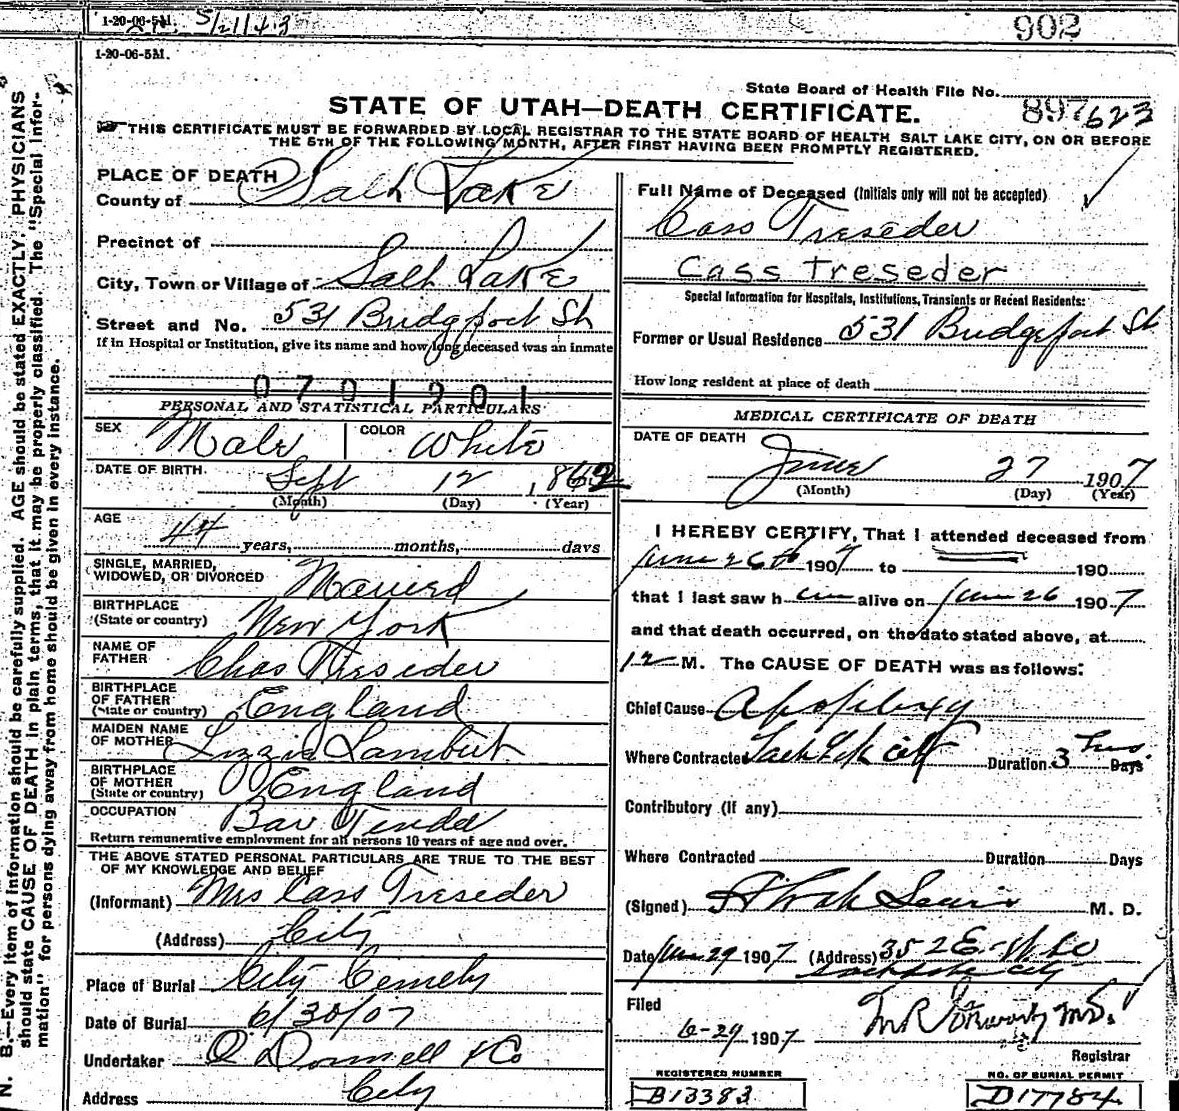 1-20-06-5M. 5/21/43
902
1-20-06-5M.
State Board of Health File No. 897623
STATE OF UTAH—DEATH CERTIFICATE.
THIS CERTIFICATE MUST BE FORWARDED BY LOCAL REGISTRAR TO THE STATE BOARD OF HEALTH SALT LAKE CITY, ON OR BEFORE
THE 5TH OF THE FOLLOWING MONTH, AFTER FIRST HAVING BEEN PROMPTLY REGISTERED.
N. B.—Every item of information should be carefully supplied. AGE should be stated EXACTLY. PHYSICIANS
should state CAUSE OF DEATH in plain terms, that it may be properly classified. The "Special Infor-
mation" for persons dying away from home should be given in every instance.
PLACE OF DEATH
County of Salt Lake
Precinct of
City, Town or Village of Salt Lake
Street and No. 531 Bridgeport St
If in Hospital or Institution, give its name and how long deceased was an inmate
0701901
PERSONAL AND STATISTICAL PARTICULARS
SEX Male COLOR White
DATE OF BIRTH Sept 12 1862
(Month) (Day) (Year)
AGE
44 years, months, days
SINGLE, MARRIED,
WIDOWED, OR DIVORCED Married
BIRTHPLACE
(State or country) New York
NAME OF
FATHER Chas Treseder
BIRTHPLACE
OF FATHER
(State or country) England
MAIDEN NAME
OF MOTHER Lizzie Lambert
BIRTHPLACE
OF MOTHER
(State or country) England
OCCUPATION Bar Tender
Return remunerative employment for all persons 10 years of age and over.
THE ABOVE STATED PERSONAL PARTICULARS ARE TRUE TO THE BEST
OF MY KNOWLEDGE AND BELIEF
(Informant) Mrs Cass Treseder
(Address) City
Place of Burial City Cemety
Date of Burial 6/30/07
Undertaker O'Donnell & Co
Address City
Full Name of Deceased (Initials only will not be accepted)
Cass Treseder
Cass Treseder
Special Information for Hospitals, Institutions, Transients or Recent Residents:
Former or Usual Residence 531 Bridgeport St
How long resident at place of death
MEDICAL CERTIFICATE OF DEATH
DATE OF DEATH
June 27 1907
(Month) (Day) (Year)
I HEREBY CERTIFY, That I attended deceased from
June 26th 1907 to 190
that I last saw him alive on June 26 1907
and that death occurred, on the date stated above, at
12 M. The CAUSE OF DEATH was as follows:
Chief Cause Apoplexy
Where Contracted Salt Lk City Duration 3 hrs Days
Contributory (if any)
Where Contracted Duration Days
(Signed) M. D.
Date June 29 1907 (Address) 352 E
Salt Lake City
Filed
6-29 1907 M.D.
Registrar
REGISTERED NUMBER
B13383
NO. OF BURIAL PERMIT
D17784